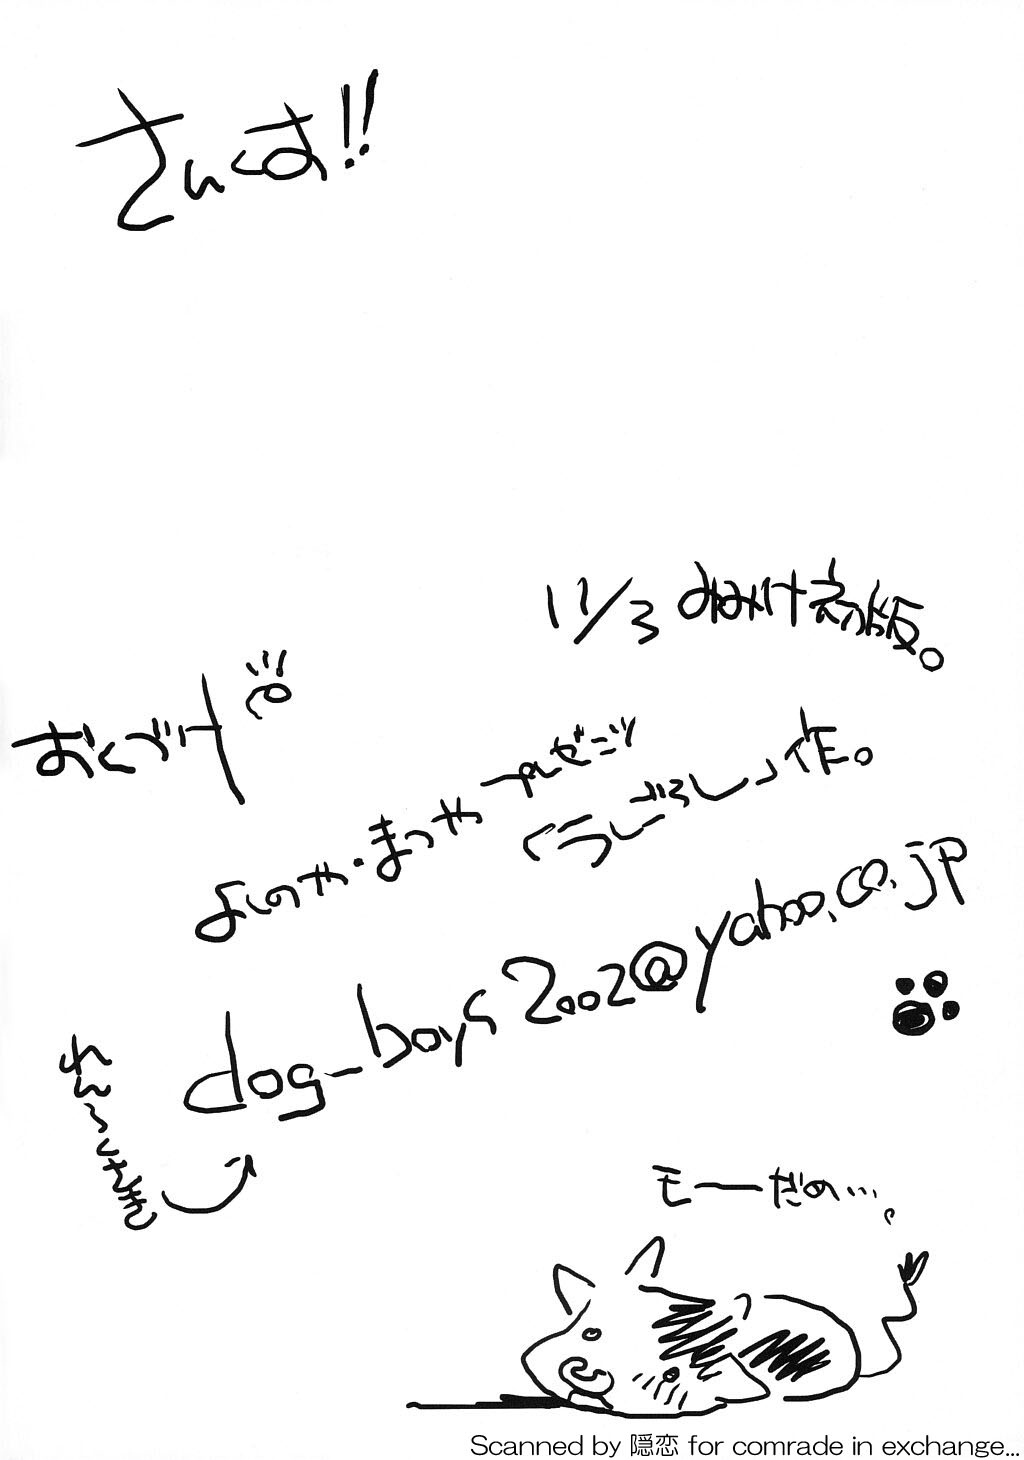 さんくす!!
11/3 みみけ初版。
おくづけ
よしのや・まつや
作。
dog_boys2002@yahoo.co.jp
れんらくさき
モーだめ…。
Scanned by 隠恋 for comrade in exchange...